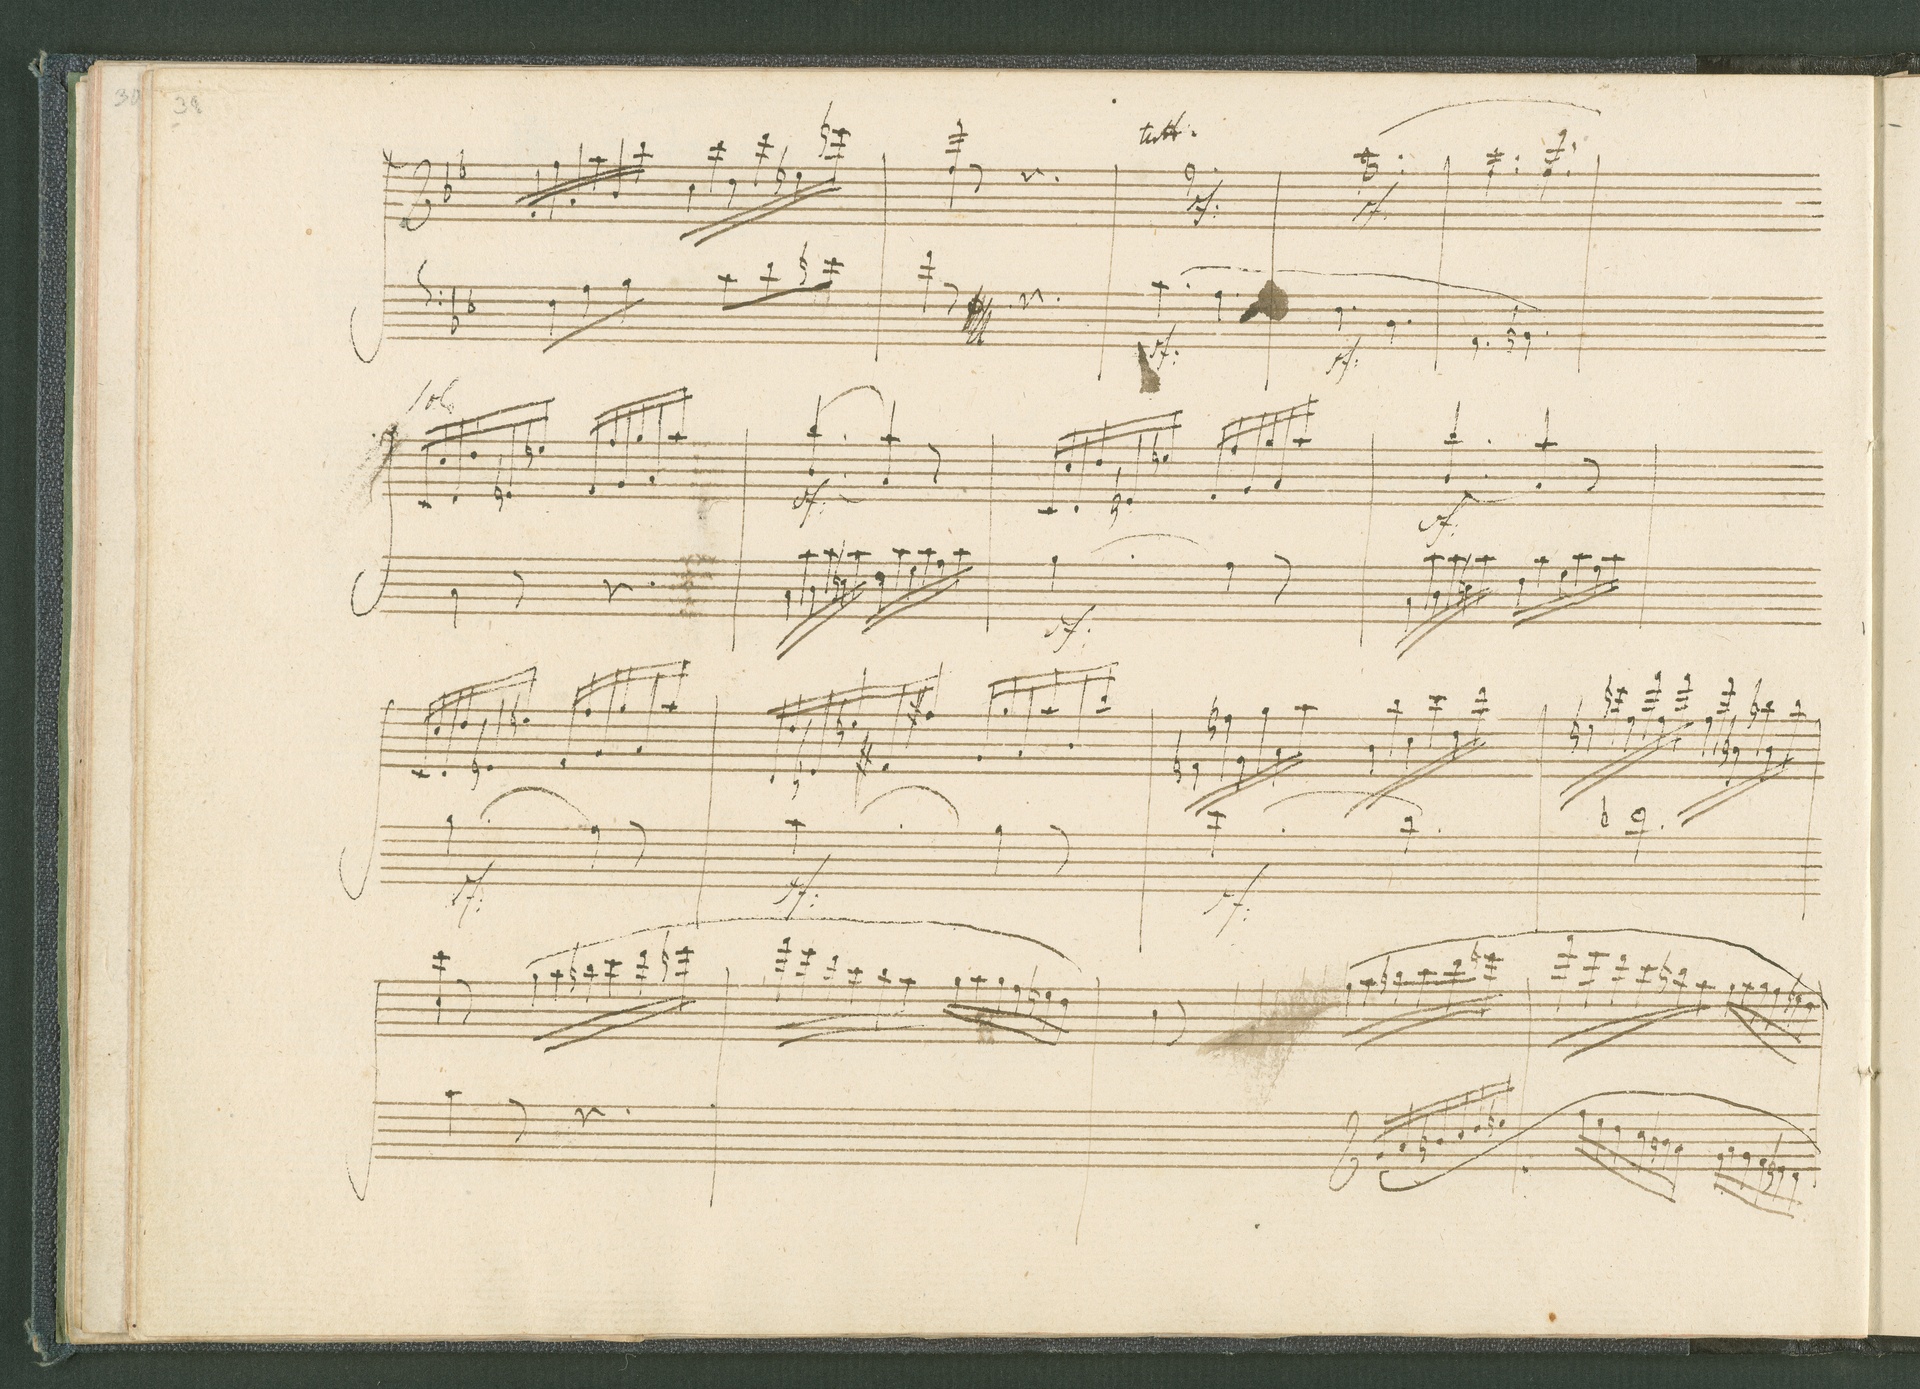 30 38
tutti.
sf: sf.
sf: sf:
Solo
sf: sf:
sf:
sf: sf: sf: